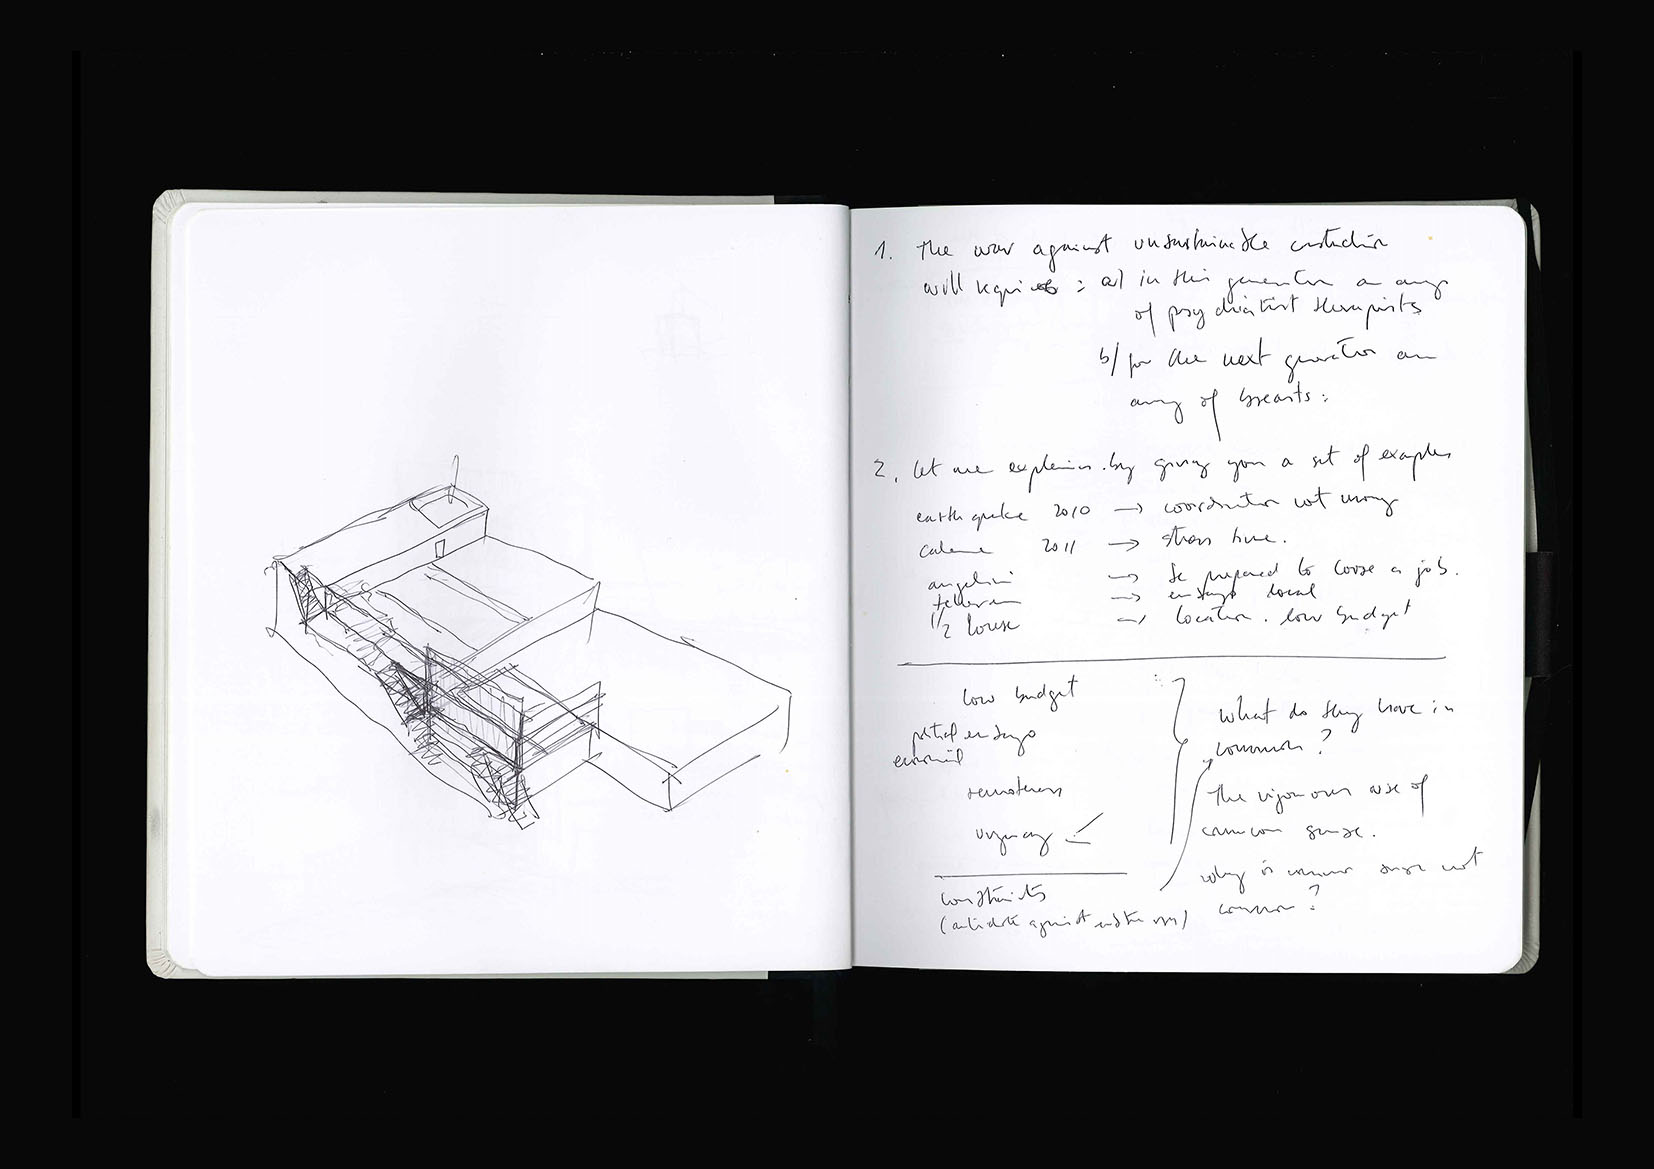 1. The war against unsustainable construction
will require : a/ in this generation an army
of psychiatrist therapists
b/ for the next generation an
army of breasts :
2. Let me explain by giving you a set of examples
earthquake 2010 → coordination not money
calama 2011 → stress time.
angelini → be prepared to loose a job.
teheran → local
1/2 house → location. low budget
low budget
remoteness
urgency
constraints
(antidote against
What do they have in
common ?
The vigorous use of
common sense.
why is common sense not
common ?